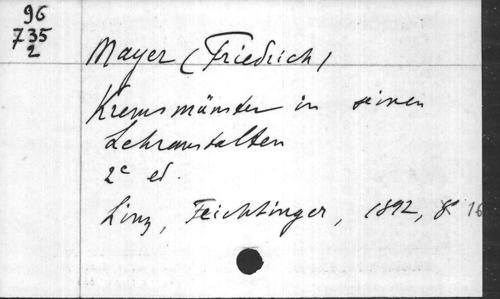 96
735
2
Mayer (Friedrich)
Kremsmünster in seinen
Lehranstalten
2e ed.
Linz, Feichtinger, 1892, 8° 16